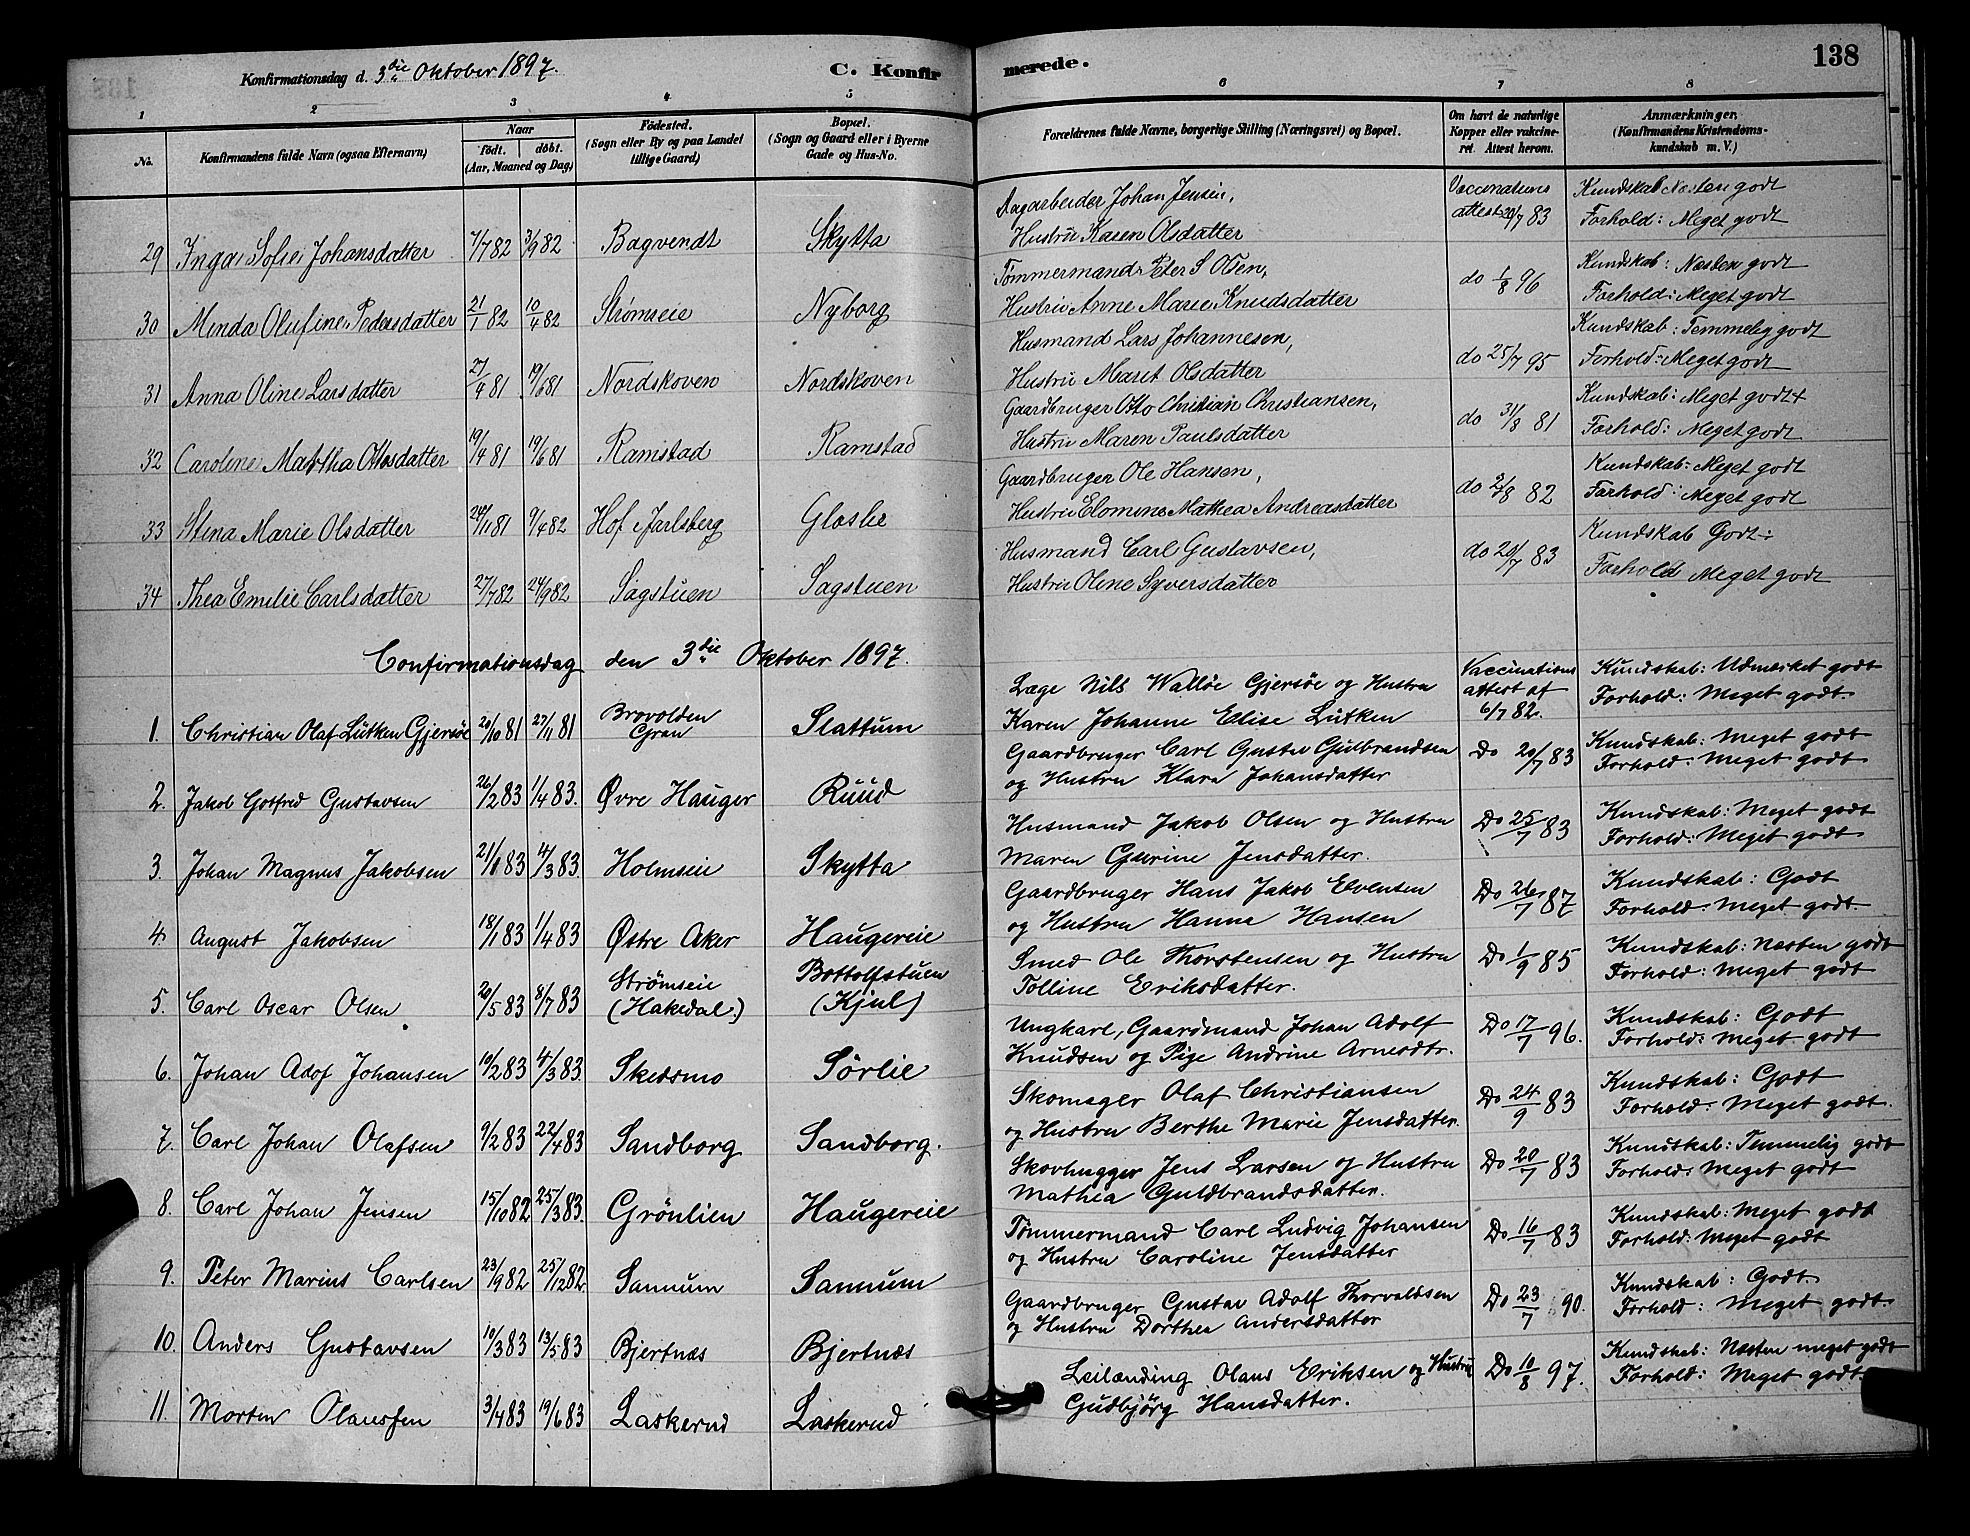 Konfirmationsdag d. 3die Oktober 1897.
C. Konfirmerede.
138
1 2 3 4 5 6 7 8
No.
Konfirmandens fulde Navn (ogsaa Efternavn)
Naar
Født. døbt.
(Aar, Maaned og Dag)
Fødested.
(Sogn eller By og paa Landet
tillige Gaard)
Bopæl.
(Sogn og Gaard eller i Byerne
Gade og Hus-No.
Forældrenes fulde Navne, borgerlige Stilling (Næringsvei) og Bopæl.
Om havt de naturlige
Kopper eller vakcine-
ret. Attest herom.
Anmærkninger.
(Konfirmandens Kristendoms-
kundskab m. V.)
Dagarbeider Johan Jensen, Vaccinations Kundskab Næsten godt
29 Inga Sofie Johansdatter 7/7 82 3/9 82 Bagvendt Skytta Hustru Karen Olsdatter attest 20/7 83 Forhold: Meget godt
Tømmermand Peter S Olsen, Kundskab: Næsten godt
30 Minda Olufine Pedersdatter 21/1 82 10/4 82 Strømseie Nyborg Hustru Anne Marie Knudsdatter do 1/8 96 Forhold: Meget godt
Husmand Lars Johannesen, Kundskab: Temmelig godt
31 Anna Oline Larsdatter 27/4 81 19/6 81 Nordskoven Nordskoven Hustru Marit Olsdatter do 25/7 95 Forhold: Meget godt
Gaardbruger Otto Christian Christiansen, Kundskab: Meget godt
32 Caroline Martha Ottosdatter 19/4 81 19/6 81 Ramstad Ramstad Hustru Maren Paulsdatter do 31/8 81 Forhold: Meget godt
Gaardbruger Ole Hansen, Kundskab: Meget godt
33 Stina Marie Olsdatter 24/11 81 9/4 82 Hof Jarlsberg Glosli Hustru Elomine Mathea Andreasdatter do 2/8 82 Forhold: Meget godt
Husmand Carl Gustavsen, Kundskab Godt
34 Thea Emilie Carlsdatter 27/7 82 24/9 82 Sagstuen Sagstuen Hustru Oline Syversdatter do 20/7 83 Forhold Meget godt
Confirmationsdag den 3die Oktober 1897.
Læge Nils Walløe Gjersøe og Hustru Vaccinations attest af Kundskab: Udmærket godt
1. Christian Olaf Lütken Gjersøe 20/10 81 27/11 81 Brovolden Gran Slattum Karen Johanne Elise Lütken 6/7 82. Forhold: Meget godt.
Gaardbruger Carl Gustav Gulbrandsen Kundskab: Meget godt
2. Jakob Gotfred Gustavsen 26/2 83 1/4 83. Øvre Hauger Ruud og Hustru Klara Johansdatter Do 20/7 83 Forhold: Meget godt
Husmand Jakob Olsen og Hustru Kundskab: Meget godt
3. Johan Magnus Jakobsen 21/1 83 4/3 83. Holmseie Skytta Maren Gurine Jensdatter. Do 25/7 83 Forhold: Meget godt
Gaardbruger Hans Jakob Evensen Kundskab: Godt
4. August Jakobsen 18/1 83 1/4 83 Østre Aker Haugereie og Hustru Hanna Hansen Do 26/7 87 Forhold: Meget godt.
Smed Ole Thorstensen og Hustru Kundskab: Næsten godt
5. Carl Oscar Olsen 20/5 83 8/7 83 Strømseie (Hakedal.) Bottolfstuen (Kjul) Tolline Eriksdatter. Do 1/9 85 Forhold: Meget godt
Ungkarl, Gaardmand Johan Adolf Kundskab: Godt
6. Johan Adof Johansen 10/2 83 4/3 83. Skedsmo Sörlie Knudsen og Pige Andrine Arnesdtr. Do 17/7 96. Forhold: Meget godt
Skomager Olaf Christiansen Kundskab: Godt
7. Carl Johan Olafsen 9/2 83 22/4 83 Sandborg Sandborg. og Hustru Berthe Marie Jensdatter. Do 24/9 83 Forhold: Meget godt.
Skovhugger Jens Larsen og Hustru Kundskab: Temmelig godt
8. Carl Johan Jensen 15/10 82 25/3 83. Grönlien Haugereie Mathea Guldbrandsdatter. Do 20/7 83 Forhold: Meget godt
Tømmermand Carl Ludvig Johansen Kundskab: Meget godt
9. Peter Marius Carlsen 23/9 82 25/12 82. Sannum Sannum og Hustru Caroline Jensdatter Do 16/7 83 Forhold: Meget godt
Gaardbruger Gustav Adolf Thorvaldsen Kundskab: Godt.
10. Anders Gustavsen 10/3 83 13/5 83 Bjertnæs Bjertnæs og Hustru Dorthea Andersdatter Do 23/7 90. Forhold: Meget godt.
Leilænding Olaus Eriksen og Hustru Kundskab: Næsten meget godt
11. Morten Olaussen 3/4 83 19/6 83 Laskerud Laskerud Gudbjörg Hansdatter. Do 10/8 97. Forhold: Meget godt